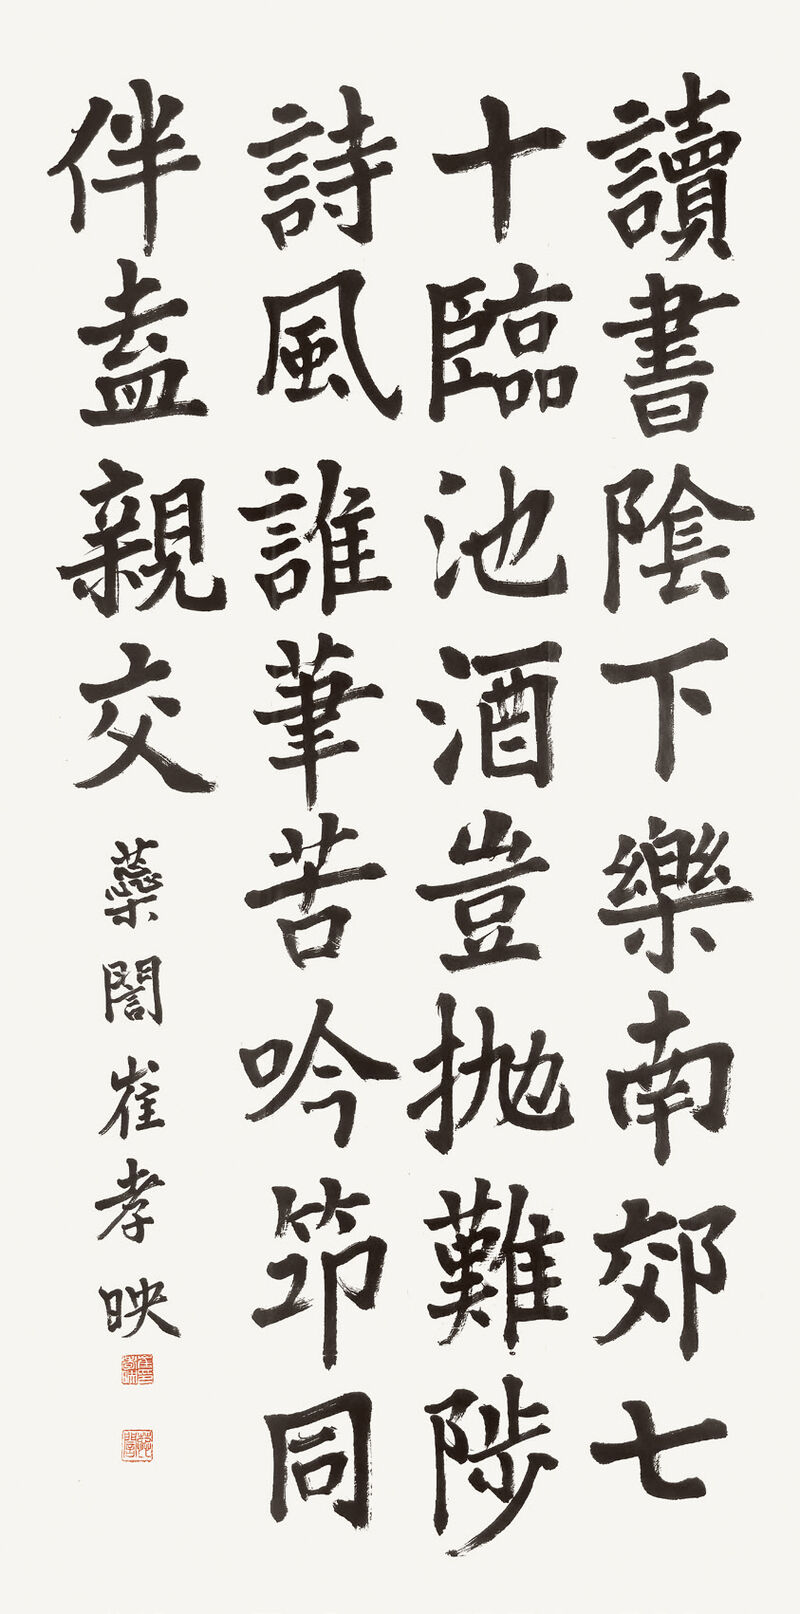 讀書陰下樂南郊七
十臨池酒豈抛難陟
詩風誰筆苦吟筇同
伴盍親交
蘂誾崔孝映